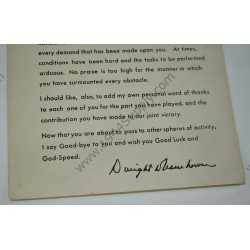 every demand that has been made upon you. At times,
conditions have been hard and the tasks to be performed
arduous. No praise is too high for the manner in which
you have surmounted every obstacle.
I should like, also, to add my own personal word of thanks
to each one of you for the part you have played, and the
contribution you have made to our joint victory.
Now that you are about to pass to other spheres of activity,
I say Good-bye to you and wish you Good Luck and
God-Speed.
Dwight D Eisenhower